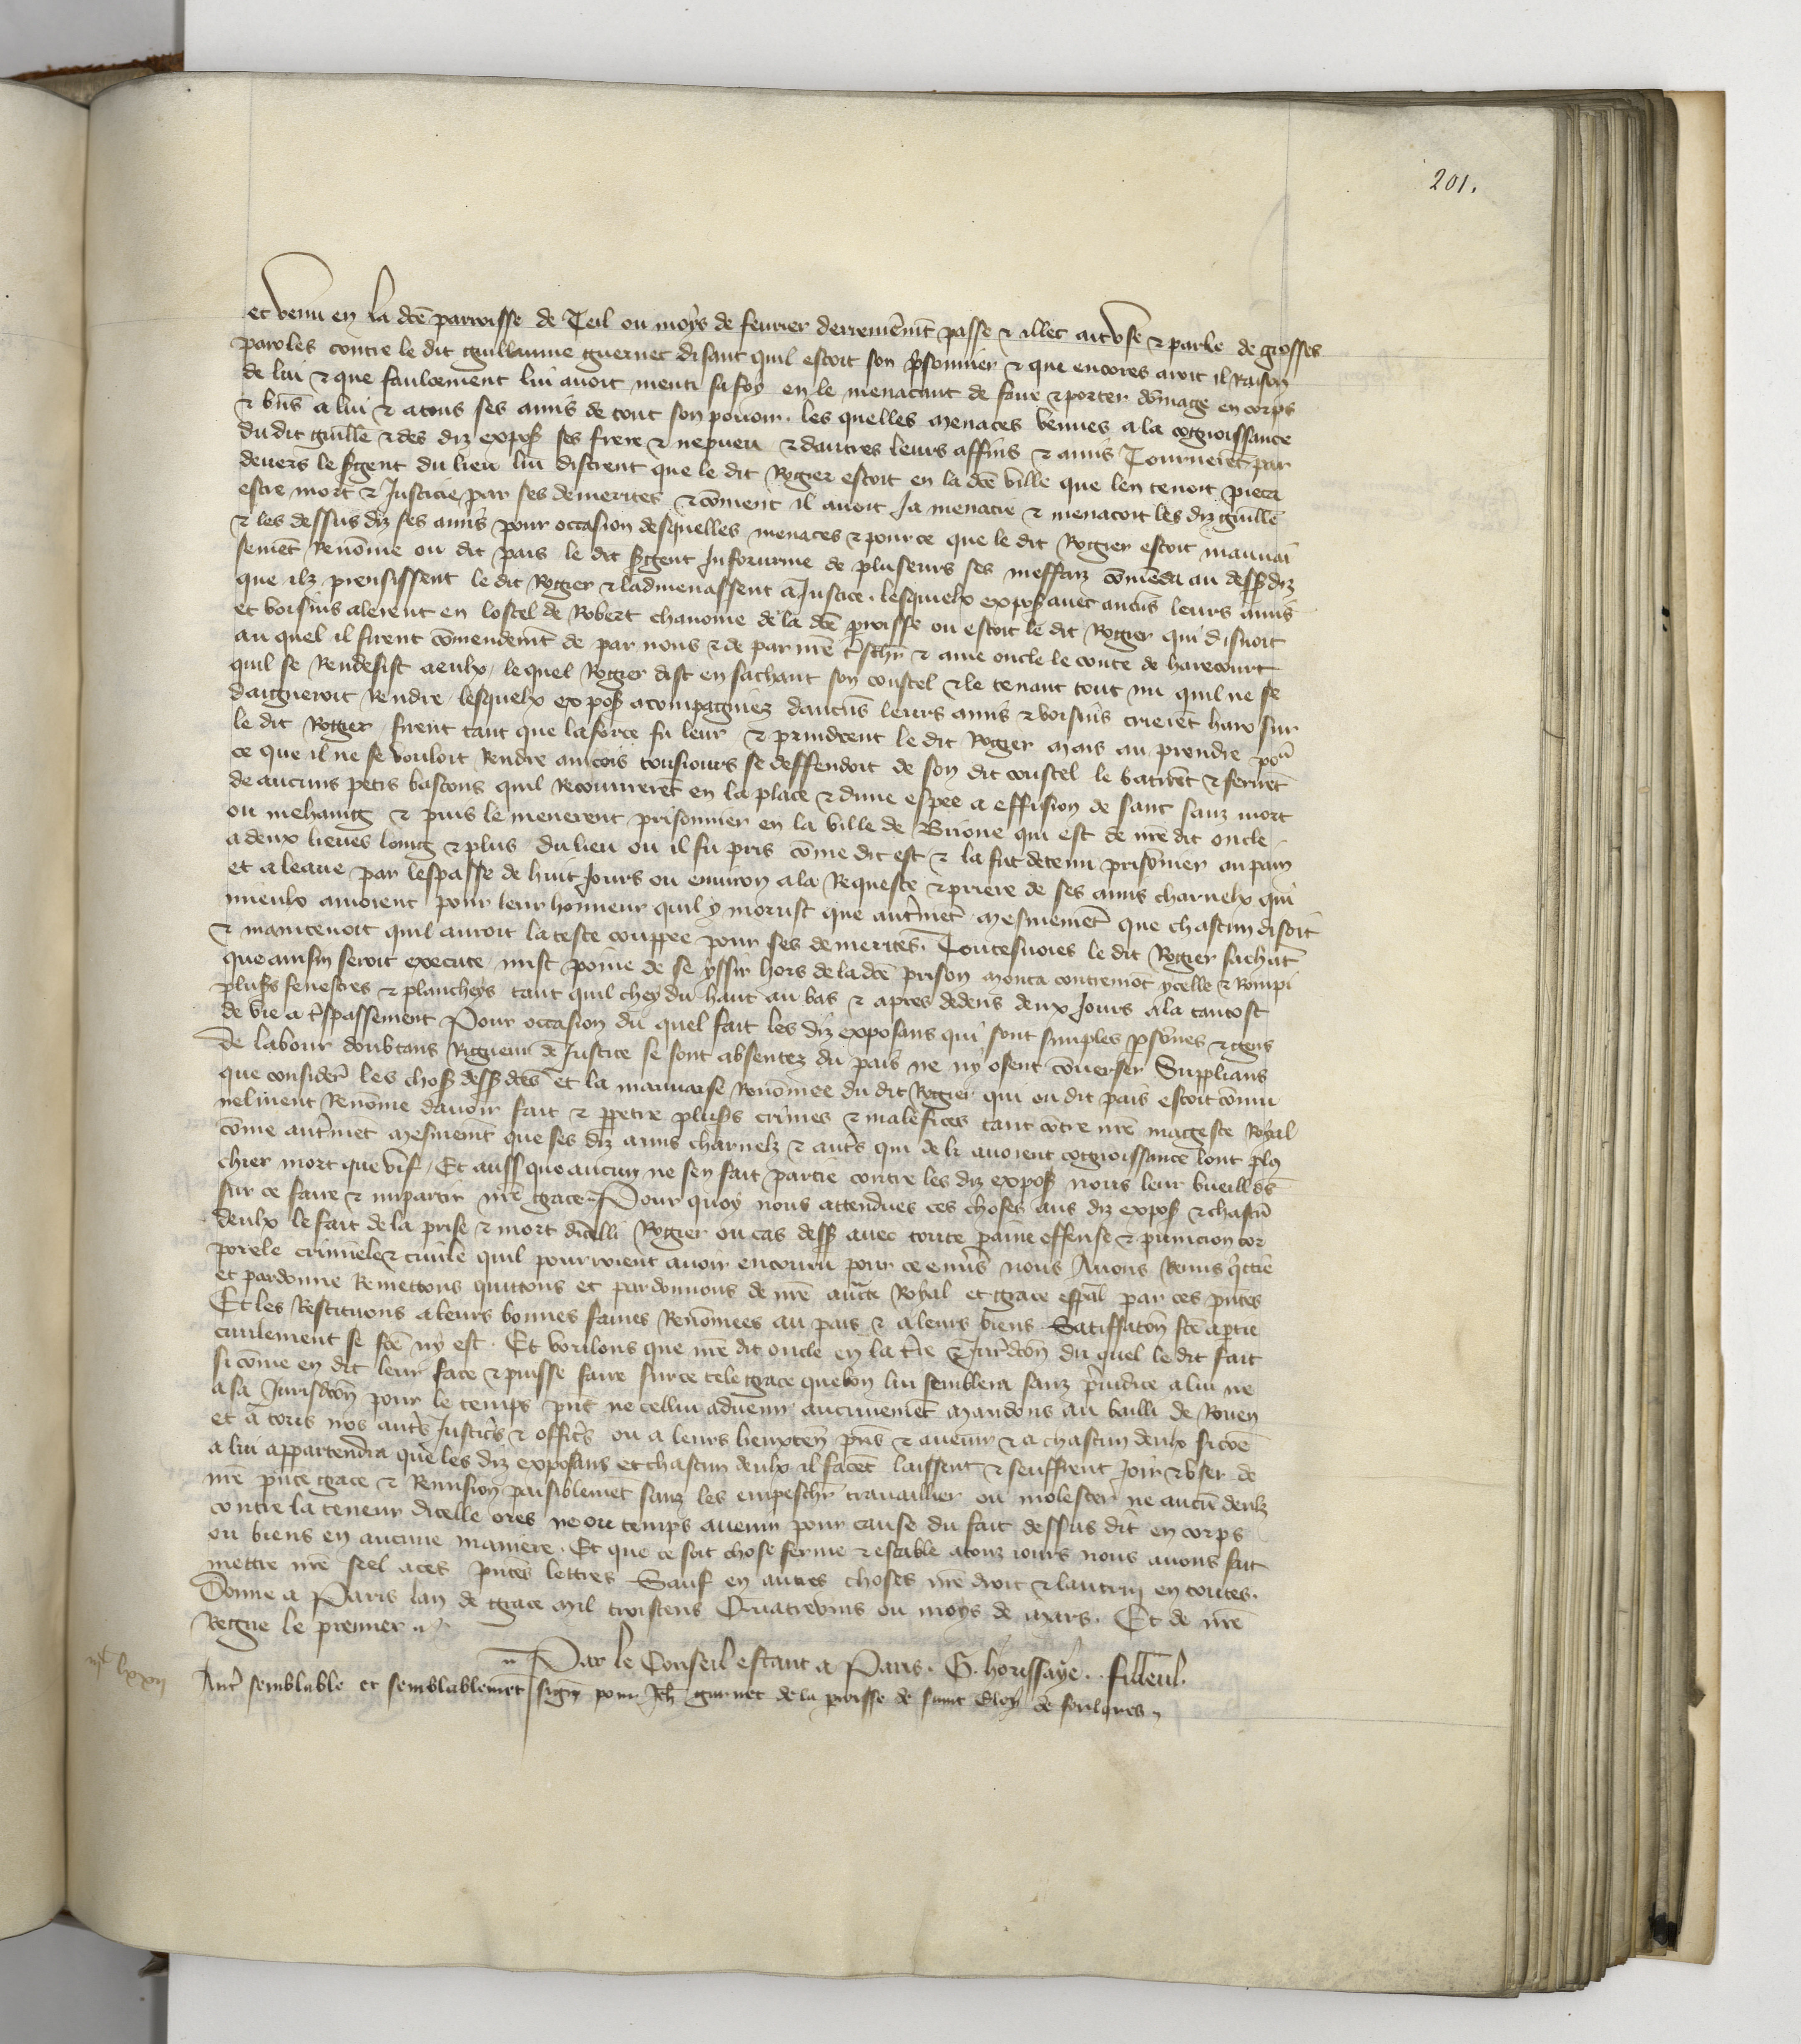 201.
et venu en la dce parroisse de Teil ou moys de fevrier derremeinit passe & illec ait use & parle de grosses
paroles contre le dit guillaume guernet disant quil estoit son psonnier & que encores avoit il raison
de lui & que faulcement lui avoit menti sa foy en le menacant de faire & porter domage en corps
& biens a lui & a tous ses amis de tout son povoir. les quelles menaces venues a la cognoissance
du dit guille & des diz expos ses frere & nepveu & dautres leurs affins & amis Tournerent par
devers le sgent du lieu lui distrent que le dit Rogier estoit en la dce ville que len tenoit pieca
estre mort & Justicie par ses demerites & coment il avoit Ja menacie & menacoit les diz guille
& les dessus diz ses amis pour occasion desquelles menaces & pour ce que le dit Rogier estoit mauvai
sement Renome ou dit pais le dit sgent Informe de pluseurs ses meffaiz comanda au dess diz
que ilz prensissent le dit Rogier & ladmenassent a Justice. lesquielx expos avec aucus leurs amis
et voisins alerent en lostel de Robert chanoine de la dce proisse ou estoit le dit Rogier qui disnoit
au quel il firent comendemt de par nous & de par nre tschr & ame oncle le conte de harecourt
quil se Rendesist a eulx, lequel Rogier dist en sachant son coustel & le tenant tout nu quil ne se
daigneroit Rendre, lesquelx expos acompagniez daucus leurs amis & voisins crierent haro sur
le dit Rogier firent tant que la force fu leur & prindrent le dit Rogier mais au prendre pour
ce que il ne se vouloit Rendre aincois tousjours se deffendoit de son dit coustel le batirent & ferirent
de aucuns petis bastons quil Recouvrerent en la place & dune espee a effusion de sanc sanz mort
ou mehaing & puis le menerent prisonnier en la ville de Brione qui est de nre dit oncle
a deux lieues loing & plus du lieu ou il fu pris come dit est & la fut detenu prisonier au pain
et a leaue par lespasse de huit Jours ou environ a la Requeste & priere de ses amis charnelx qui
mieulx amoient pour leur honneur quil y morust que autrmet mesmement que chascun disoit
& maintenoit quil auroit la teste couppee pour ses demerites. Toutesvoies le dit Rogier sachat
que ainsin seroit execute mist poine de se yssir hors de la dce prison monta contremot ycelle & Rompi
plus fenestres & plancheys tant quil chey du haut au bas & apres dedens deux Jours ala tantost
de vie a tspassement Pour occasion du quel fait les diz exposans qui sont simples psones & gens
de labour doubtans Rigueur de Justice se sont absentez du pais ne ny osent converser Supplians
que considere les chos dess dces et la mauvaise Renomee du dit Rogier qui ou dit pais estoit comu
nelment Renome davoir fait & ppetre plus crimes & malefices tant cotre nre mageste Royal
come autrmet mesmemt que ses diz amis charnelz & autrs qui de li avoient cognoissance lont plus
chier mort que vif, Et aussi que aucun ne sen fait partie contre les diz expos nous leur vueillos
sur ce faire & impartir nre grace Pour quoy nous attendues ces choses aus diz expos & chascu
deulx le fait de la prise & mort dicelli Rogier ou cas dess avec toute paine offense & punicion cor
porele criminele & civile quil pourroient avoir encouru pour ce envers nous Avons Remis quictie
et pardonne Remettons quittons et pardonnons de nre aucte Royal et grace espal par ces pntes
Et les Restituons a leurs bonnes fames Renomees au pais & a leurs biens Satiffaton fce a ptie
civilement se fce ny est. Et voulons que nre dit oncle en la tre & Jurdcon du quel le dit fait
si come en dit leur face & puisse faire sur ce tele grace que bon lui semblera sanz preiudice a lui ne
a sa Jurisdcon pour le temps pnt ne cellui advenir aucunement Mandons au bailli de Rouen
et a tous nos autrs Justicrs & officrs ou a leurs lieuxten pns & avenir & a chascun deulx si coe
a lui appartendra que les diz exposans et chascun deulx il facet laissent & seuffrent Joir & user de
nre pnte grace & Remision paisiblemet sanz les empeschr travaillier ou molester ne aucu deulz
contre la teneur dicelle ores ne ou temps avenir pour cause du fait dessus dit en corps
ou biens en aucune maniere. Et que ce soit chose ferme & estable a touz jours nous avons fait
mettre nre seel a ces pntes lettres Sauf en autres choses nre droit & lautrui en toutes.
Donne a Paris lan de grace mil troiscens Quatrevins ou moys de mars. Et de nre
Regne le premier.
Par le Conseil estant a Paris. G. houssaye. filleul.
Autr semblable et semblablement sign pour Jeh gurnet de la proisse de saint Eloy de foulqres